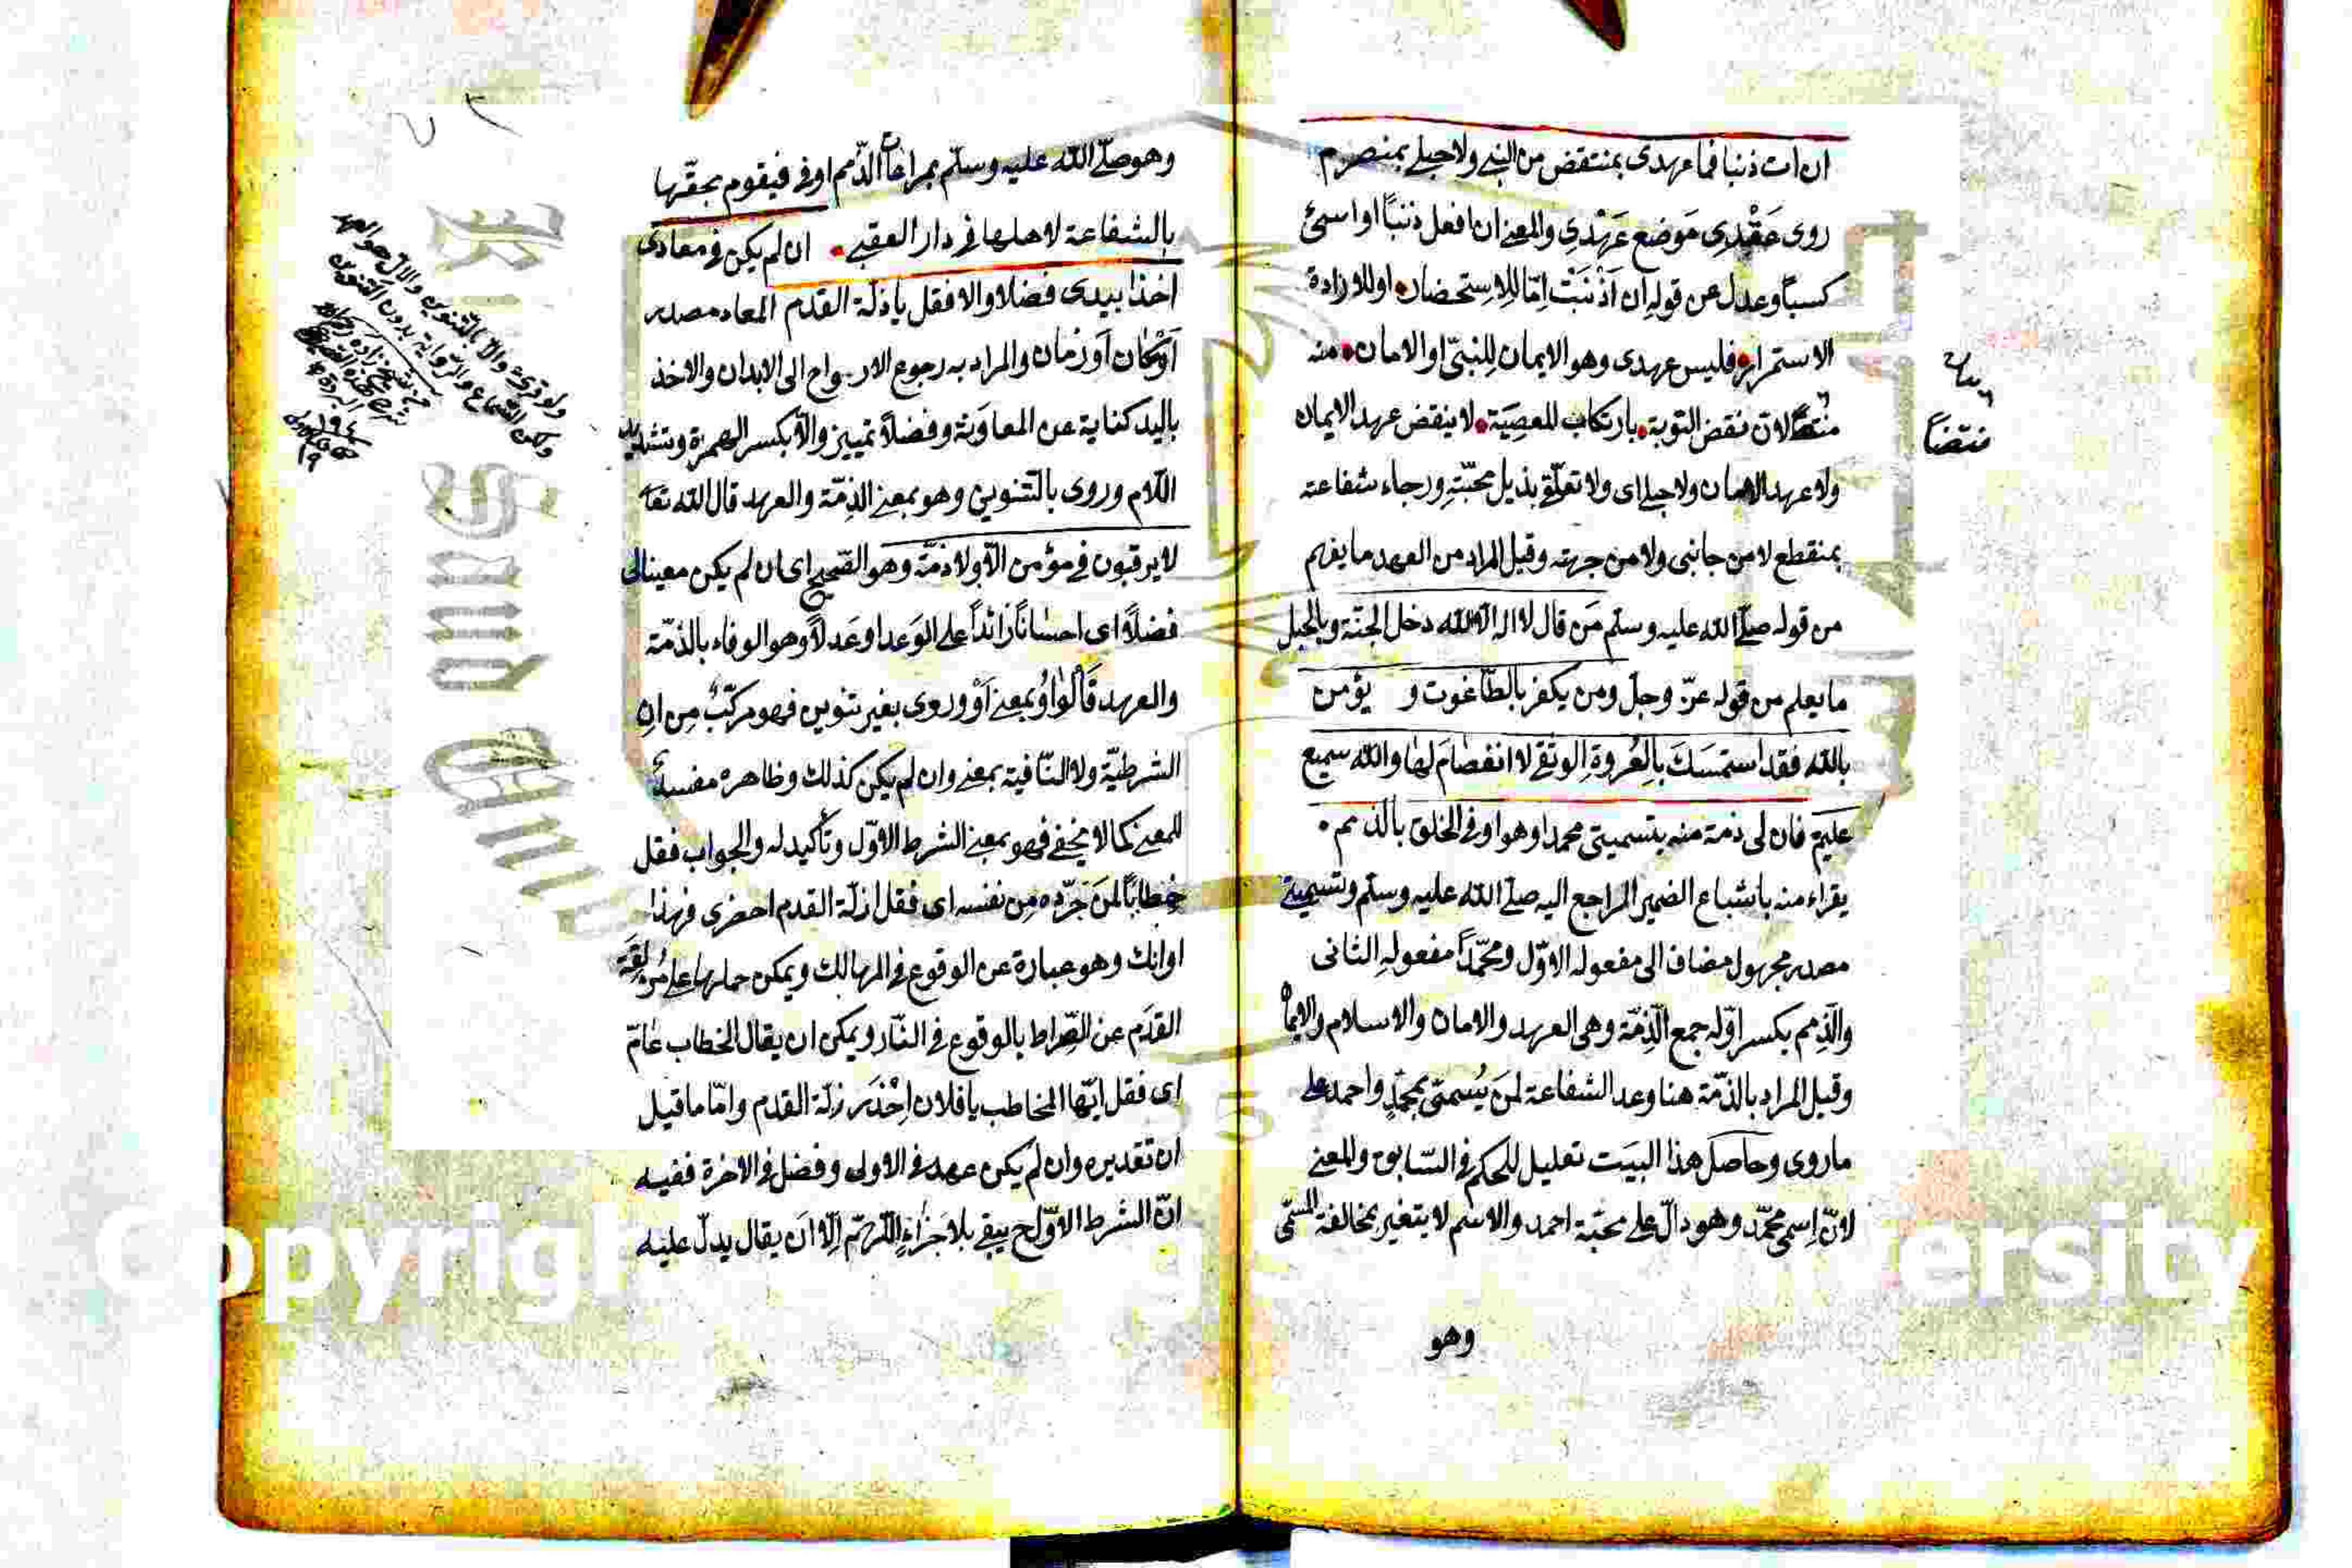 ان ات ذنبا فما عهدى بمنتقض من النبى ولا حبلى بمنصرم
روى عَقْدِى مَوضع عَهْدِى والمعنى ان افعل ذنبًا او اسئ
كسبًا وعدل عن قولِه ان اَذْنَبْتُ امّا للاستحضار او للارادة
الاستمرار فليس عهدى وهو الايمان لِلنبىّ او الامان منه
لان نقض التوبة بارتكاب المعصِيَة لا ينقض عهد الايمان
ولا عهد الامان ولا حبلى اى ولا تعلّق بذيل محبّتِه ورجاء شفاعته
بمنقطع لا من جانبى ولا من جهته وقيل المراد من العهد ما يفهم
من قوله صلّى الله عليه وسلّم مَن قال لا اله الا الله دخل الجنّة وبالحبل
ما يعلم من قوله عزّ وجلّ ومن يكفر بالطّاغوت و يؤمن
بالله فقد استمسَكَ بالعُروةِ الوثقى لا انفصَامَ لها والله سميع
عليم فان لى ذمة منه بتسميتى محمدا وهو اوفى الخلق بالذمم
يقراء منه باشباع الضمير الراجع اليه صلّى الله عليه وسلّم وتسميتى
مصدر مجهول مضاف الى مفعوله الاوّل ومحمّدًا مفعوله الثانى
والذِمم بكسر اوّله جمع الذِمّة وهى العهد والامان والاسلام والايمان
وقيل المراد بالذمّة هنا وعد الشفاعة لمَن يُسمّى بمحمّدٍ واحمد على
ما روى وحاصل هذا البيت تعليل للحكم فى السّابق والمعنى
لانّ اِسمى محمّد وهو دالّ على محبّة احمد والاسم لا يتغير بمخالفة المسمّى
وهو
منتقضاً
وهو صلّى الله عليه وسلّم بمراعات الذّمم اوفى فيقوم بحقّها
بالشفاعة لاهلها فى دار العقبى ان لم يكن فى معادى
اخذا بيدى فضلا والا فقل يا زلّة القدم المعاد مصدر
اَوْ مكان اَو زمان والمراد به رجوع الارواح الى الابدان والاخذ
باليد كناية عن المعاوَنة وفضلاً تمييز والّا بكسر الهمزة وتشديد
اللام وروى بالتّنوين وهو بمعنى الذِمّة والعهد قال الله تعا
لا يرقبون فى مؤمن الّا ولا ذمّة وهو الصّحيح اى ان لم يكن معينا لى
فضلاً اى احسانًا زائداً على الوَعد او عَدلاً وهو الوفاء بالذمّة
والعهد فالواوُ بمعنى اَوْ وروى بغير تنوين فهو مركّبٌ مِن ان
الشرطيّة ولا النّافية بمعنى وان لم يكن كذلك وظاهره مفسدٌ
للمعنى كما لا يخفى فهو بمعنى الشرط الاوّل وتأكيد له والجواب فقل
خِطابًا لمَن جَرّده مِن نفسه اى فقل ازلّة القدم احضرى فهذا
اوانك وهو عبارة عن الوقوع فى المهالك ويمكن حملها على مُزلقَة
القدَم عن الصِّراط بالوقوع فى النّار ويمكن ان يقال الخطاب عَامّ
اى فقل ايّها المخاطب يا فلان اِحْذَر زلّة القدم وامّا ما قيل
ان تقديره وان لم يكن عهد فى الاولى وفضل فى الاخرة ففيه
انّ الشرط الاوّل ح يبقى بلا جَزاءٍ اللّهمّ اِلّا ان يقال يدلّ عليه
ولو قرئ والّا بالتّنوين والالّ هو العهد
ولكن السّماع والرّواية بدون التّنوين